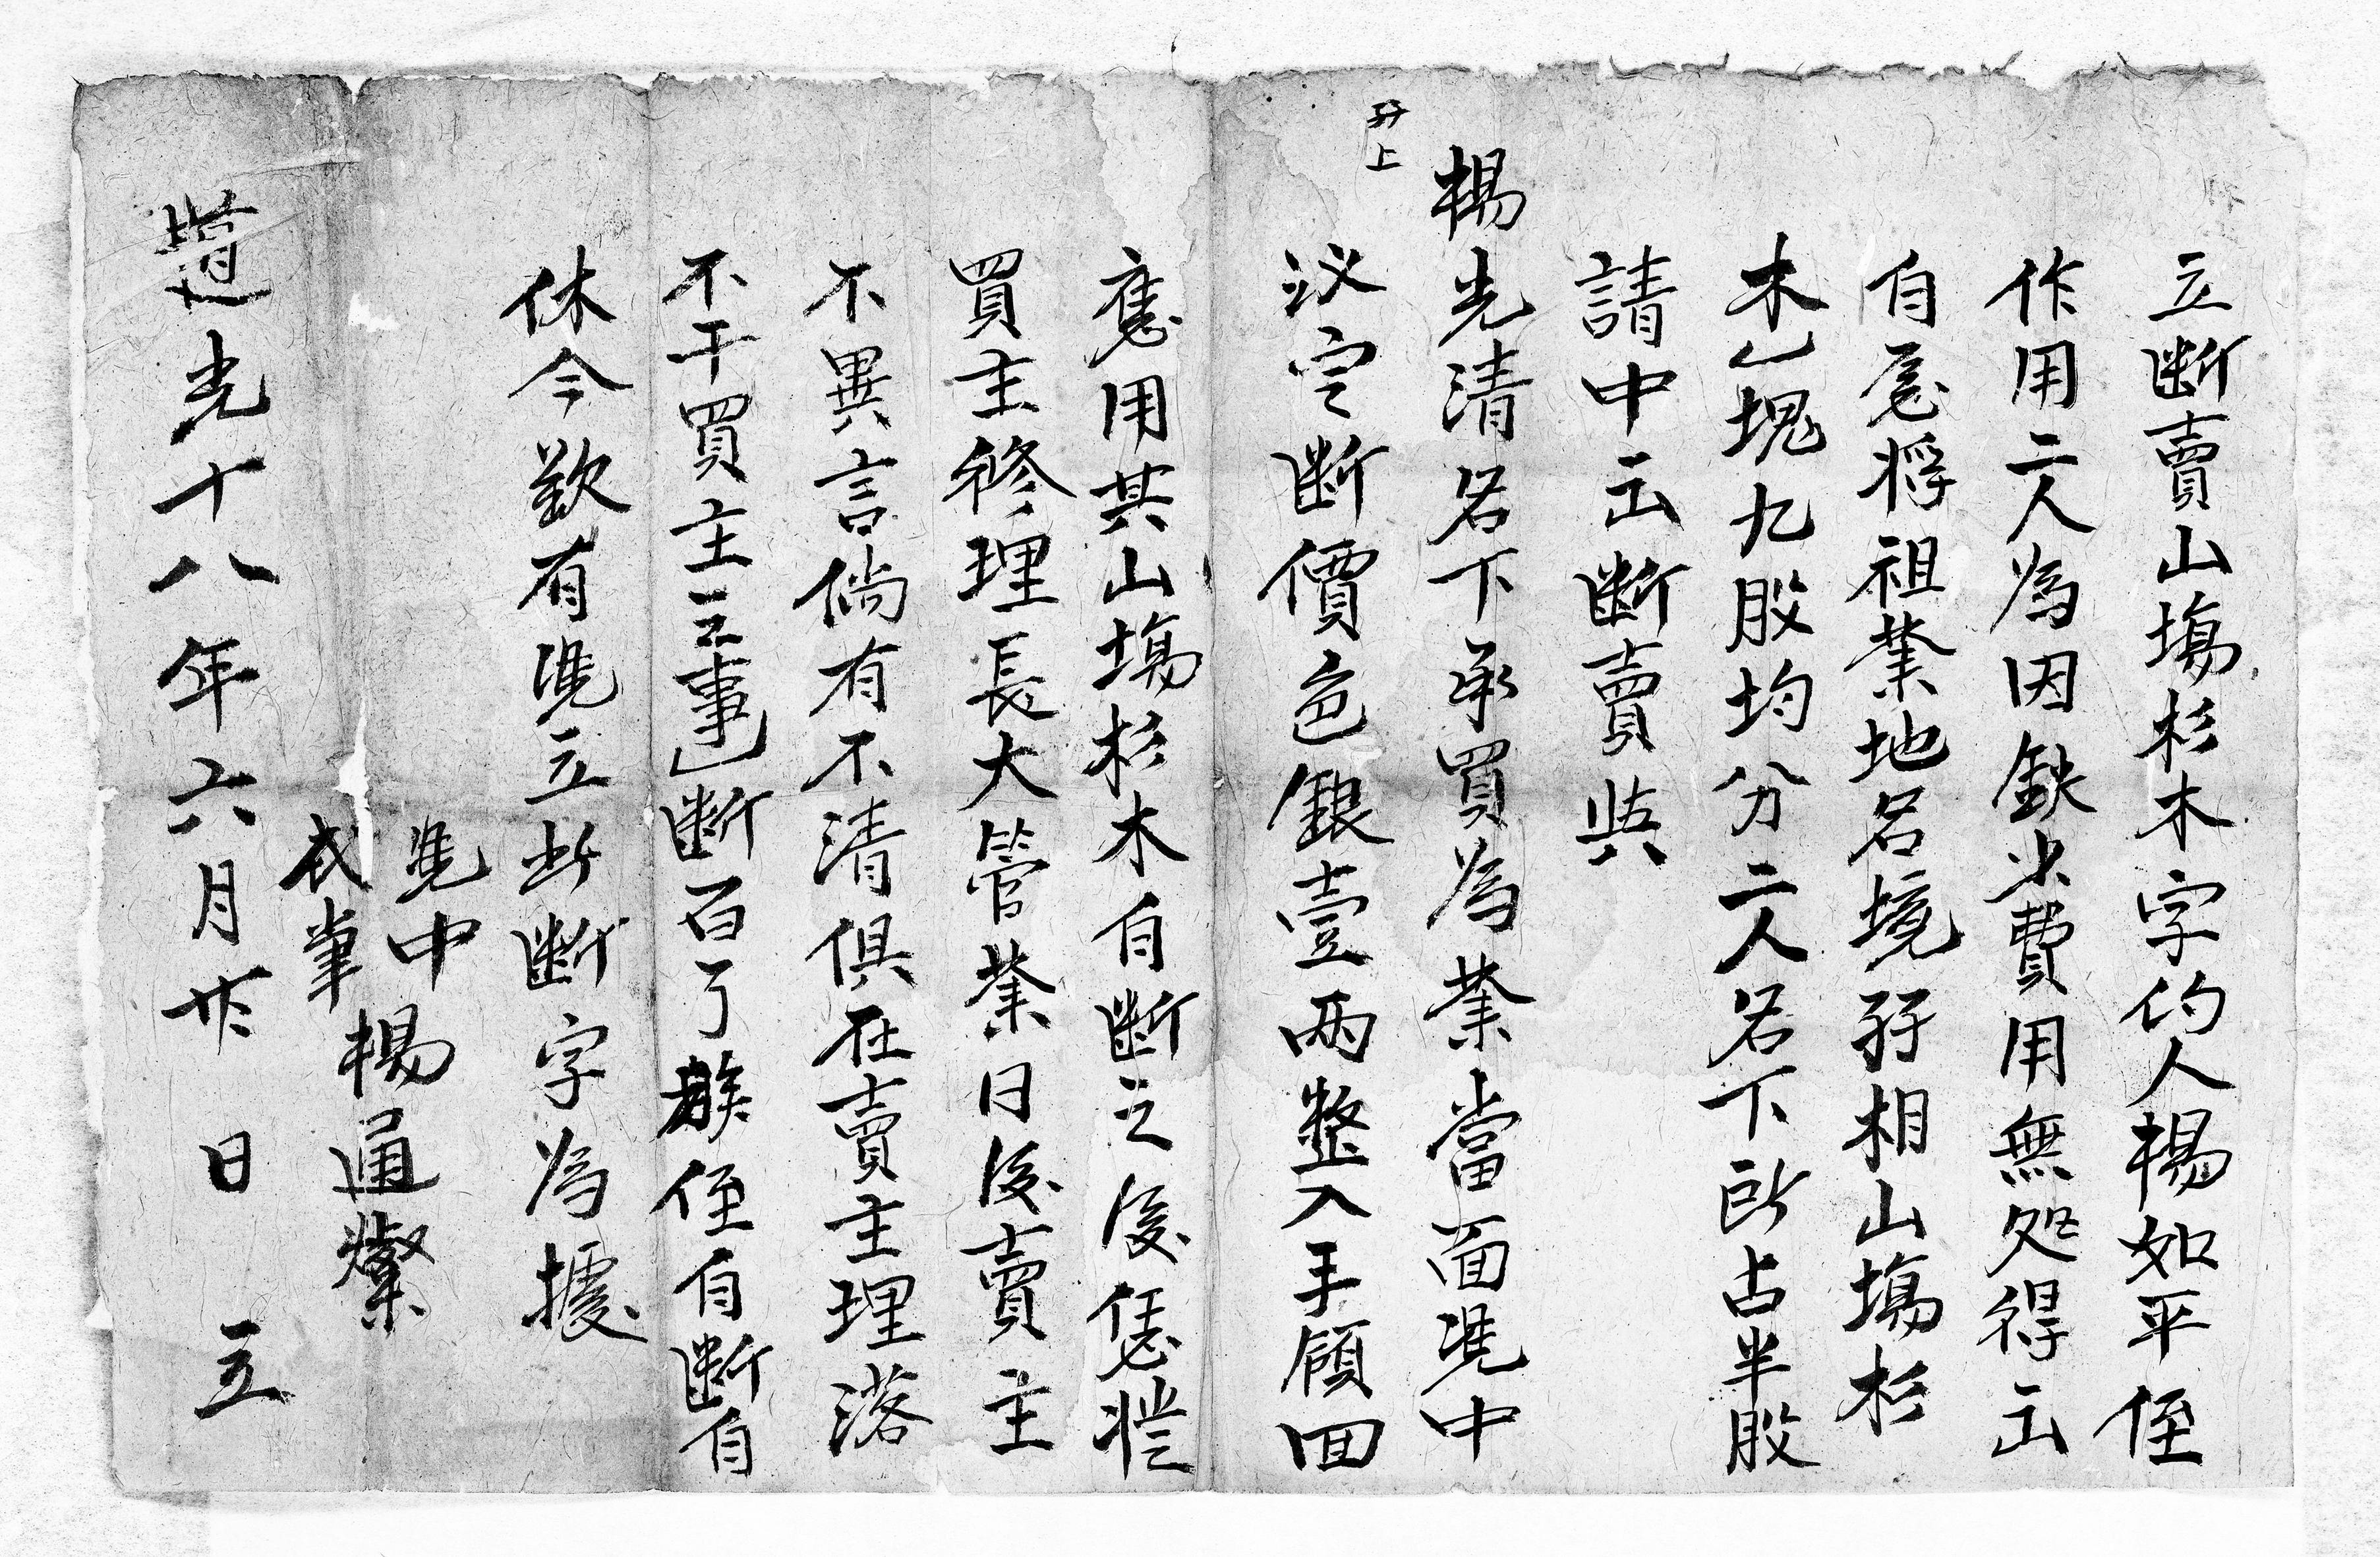 立断賣山塲杉木字约人楊如平侄
作用二人為因缺少費用無処得出
自愿将祖業地名境孖相山塲杉
木乙塊九股均分二人名下所占半股
請中出断賣與
楊光清名下承買為業當面凴中
孖上
议定断價色銀壹两整入手領回
應用其山塲杉木自断之後恁憑
買主修理長大管業日後賣主
不異言倘有不清俱在賣主理落
不干買主之事一断百了 侄自断自
休今欲有凴立此断字為據
凴中
代筆
楊通燦
道光十八年六月廿 日 立